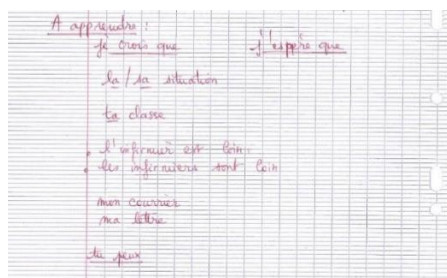 A apprendre :
je crois que j'espère que
la / sa situation
ta classe
l'infirmier est loin.
les infirmiers sont loin
mon courrier
ma lettre
tu peux